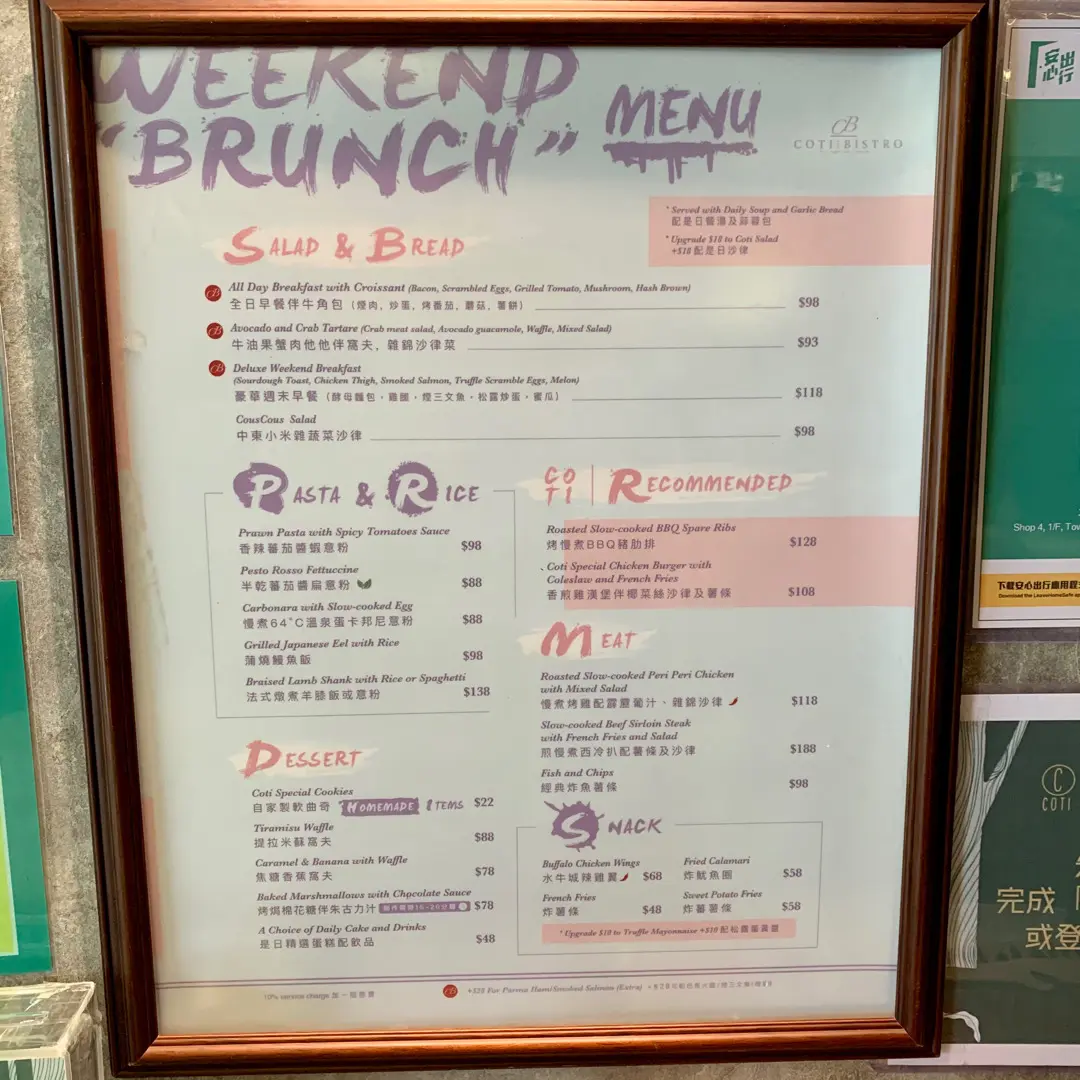 WEEKEND
"BRUNCH"
MENU
CB
COTI BISTRO
* Served with Daily Soup and Garlic Bread
配是日餐湯及蒜蓉包
* Upgrade $18 to Coti Salad
+$18 配是日沙律
SALAD & BREAD
All Day Breakfast with Croissant (Bacon, Scrambled Eggs, Grilled Tomato, Mushroom, Hash Brown)
全日早餐伴牛角包 (煙肉, 炒蛋, 烤番茄, 蘑菇, 薯餅) $98
Avocado and Crab Tartare (Crab meat salad, Avocado guacamole, Waffle, Mixed Salad)
牛油果蟹肉他他伴窩夫, 雜錦沙律菜 $93
Deluxe Weekend Breakfast
(Sourdough Toast, Chicken Thigh, Smoked Salmon, Truffle Scramble Eggs, Melon)
豪華週末早餐 (酵母麵包・雞髀・煙三文魚・松露炒蛋・蜜瓜) $118
CousCous Salad
中東小米雜蔬菜沙律 $98
PASTA & RICE
Prawn Pasta with Spicy Tomatoes Sauce
香辣蕃茄醬蝦意粉 $98
Pesto Rosso Fettuccine
半乾蕃茄醬扁意粉 $88
Carbonara with Slow-cooked Egg
慢煮64°C溫泉蛋卡邦尼意粉 $88
Grilled Japanese Eel with Rice
蒲燒鰻魚飯 $98
Braised Lamb Shank with Rice or Spaghetti
法式燉煮羊膝飯或意粉 $138
COTI | RECOMMENDED
Roasted Slow-cooked BBQ Spare Ribs
烤慢煮BBQ豬肋排 $128
Coti Special Chicken Burger with
Coleslaw and French Fries
香煎雞漢堡伴椰菜絲沙律及薯條 $108
MEAT
Roasted Slow-cooked Peri Peri Chicken
with Mixed Salad
慢煮烤雞配霹靂葡汁、雜錦沙律 $118
Slow-cooked Beef Sirloin Steak
with French Fries and Salad
煎慢煮西冷扒配薯條及沙律 $188
Fish and Chips
經典炸魚薯條 $98
DESSERT
Coti Special Cookies
自家製軟曲奇 HOMEMADE ITEMS $22
Tiramisu Waffle
提拉米蘇窩夫 $88
Caramel & Banana with Waffle
焦糖香蕉窩夫 $78
Baked Marshmallows with Chocolate Sauce
烤焗棉花糖伴朱古力汁 製作需時15-20分鐘 $78
A Choice of Daily Cake and Drinks
是日精選蛋糕配飲品 $48
SNACK
Buffalo Chicken Wings
水牛城辣雞翼 $68
Fried Calamari
炸魷魚圈 $58
French Fries
炸薯條 $48
Sweet Potato Fries
炸蕃薯條 $58
* Upgrade $10 to Truffle Mayonnaise +$10 配松露蛋黃醬
10% service charge 加一服務費
+$28 For Parma Ham/Smoked Salmon (Extra)
安心出行
Shop 4, 1/F, Tow
下載安心出行應用程
Download the LeaveHomeSafe ap
C
COTI
完成
或登